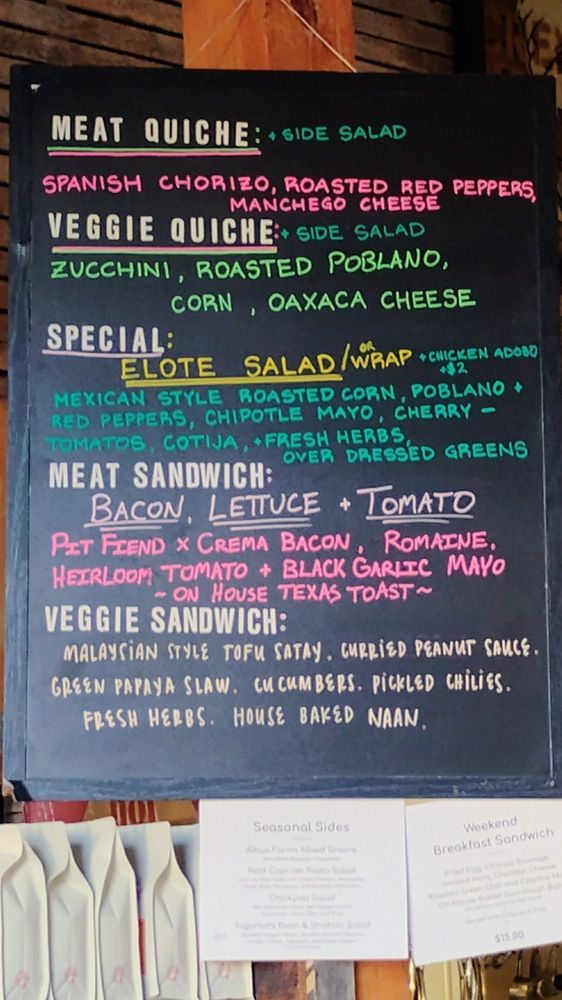 MEAT QUICHE: + SIDE SALAD
SPANISH CHORIZO, ROASTED RED PEPPERS,
MANCHEGO CHEESE
VEGGIE QUICHE: + SIDE SALAD
ZUCCHINI, ROASTED POBLANO,
CORN, OAXACA CHEESE
SPECIAL:
ELOTE SALAD/OR WRAP + CHICKEN ADOBO
+$2
MEXICAN STYLE ROASTED CORN, POBLANO +
RED PEPPERS, CHIPOTLE MAYO, CHERRY -
TOMATOS, COTIJA, + FRESH HERBS,
OVER DRESSED GREENS
MEAT SANDWICH:
BACON, LETTUCE + TOMATO
PIT FIEND X CREMA BACON, ROMAINE,
HEIRLOOM TOMATO + BLACK GARLIC MAYO
~ ON HOUSE TEXAS TOAST ~
VEGGIE SANDWICH:
MALAYSIAN STYLE TOFU SATAY, CURRIED PEANUT SAUCE,
GREEN PAPAYA SLAW, CUCUMBERS, PICKLED CHILIES,
FRESH HERBS, HOUSE BAKED NAAN.
Seasonal Sides
Altius Farms Mixed Greens
Petit Caprese Pasta Salad
Chickpea Salad
Togarashi Bean & Shishito Salad
Weekend
Breakfast Sandwich
Fried Egg, Chorizo Sausage,
Smoked Ham, Cheddar Cheese,
$15.00